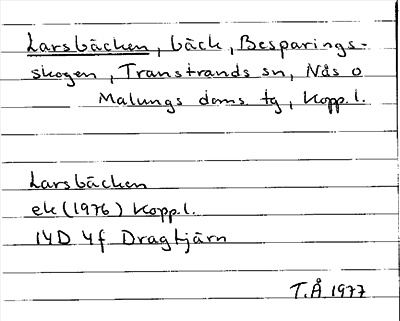 Larsbäcken, bäck, Besparings-
skogen, Transtrands sn, Nås o
Malungs doms. tg, Kopp. l.
Larsbäcken
ek (1976) Kopp. l.
14D 4f Dragtjärn
T.Å. 1977